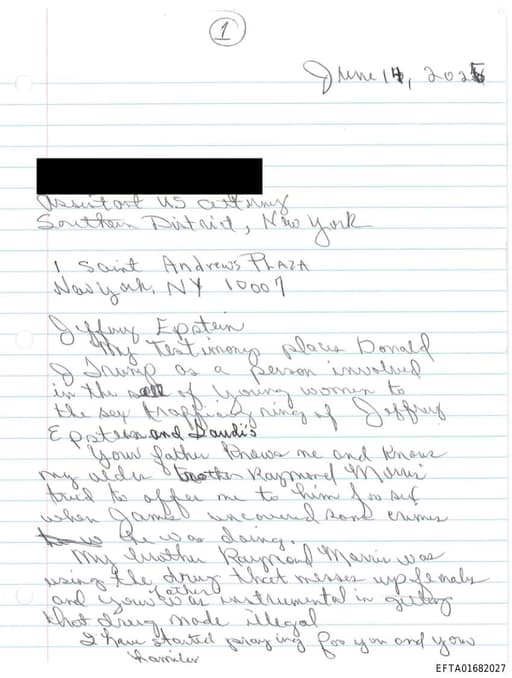 1
June 14, 2025
Assistant US attorney
Southern District, New York
1 Saint Andrews Plaza
New York, NY 10007
Jeffrey Epstein
My Testimony places Donald
J Trump as a person involved
in the sell of young women to
the sex trafficing ring of Jeffrey
Epstein and Saudi's
Your father knows me and knows
my older brother Raymond Morris
tried to offer me to him for sex
when James uncovered some crimes
he was doing.
My brother Raymond Morris was
using the drug that messes up females
and your father was instrumental in getting
that drug made illegal
I have started praying for you and your
families
EFTA01682027